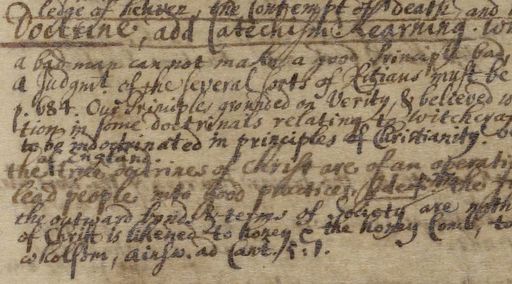 ledge of heaven, the contempt of death, and
Doctrine, add Catechism: Learning.
a bad man can not make a good principle bad,
a Judgmt. of the several sorts of must be
p. 684. Our principles grounded on Verity, & believed
tion in some doctrinals relating to witchcra
to be indoctrinated in principles of Christianity.
of England.
the true doctrines of Christ are of an operati
lead people into good practices, the
the outward bonds & terms of Society are noth
of Christ is likened to honey & the honey Comb, to
wholsom, Ainsw. ad Cant. 5:1.